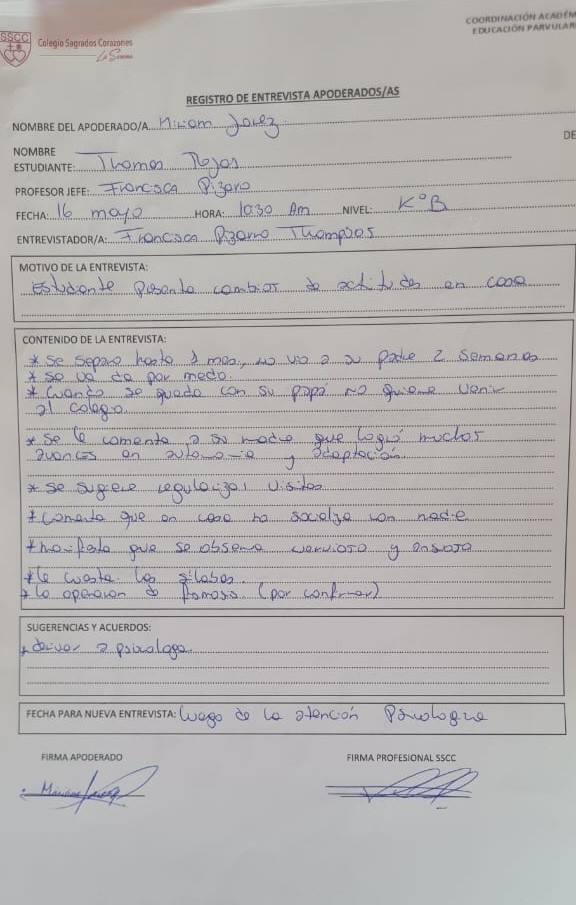 SSCC
Colegio Sagrados Corazones
COORDINACIÓN ACADÉM
EDUCACIÓN PARVULAR
REGISTRO DE ENTREVISTA APODERADOS/AS
NOMBRE DEL APODERADO/A Miriam Jerez
DE
NOMBRE
ESTUDIANTE: Thomas Rojas
PROFESOR JEFE: Francisca Pizarro
FECHA: 16 mayo HORA: 10:30 Am NIVEL: K°B
ENTREVISTADOR/A: Francisca Pizarro Thompsos
MOTIVO DE LA ENTREVISTA:
Estudiante presenta cambios de actitudes en casa
CONTENIDO DE LA ENTREVISTA:
* Se separo hasta 1 mes, no vio a su padre 2 semanas
* Se va de por medio.
* Cuando se queda con su papá no quiere venir
al colegio.
* Se le comenta a su madre que logró muchos
avances en autonomia y adaptación.
* Se sugiere regularizar visitas
* Comenta que en casa no socializa con nadie
* Manifiesta que se observa nervioso y ansioso
* le cuesta las silabas.
* lo operacion de (por confirmar)
SUGERENCIAS Y ACUERDOS:
* derivar a psicologa
FECHA PARA NUEVA ENTREVISTA: luego de la atención Psicologica
FIRMA APODERADO FIRMA PROFESIONAL SSCC